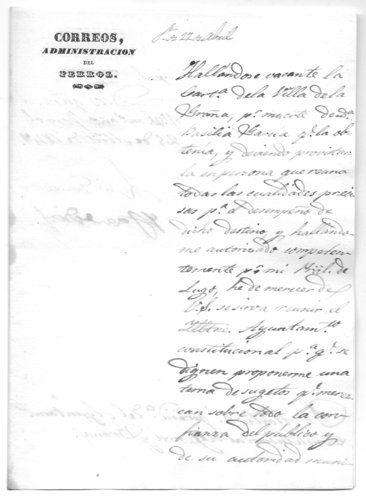 CORREOS,
ADMINISTRACION
DEL
FERROL.
22 Abril
Hallandose vacante la
Cart.ª de la Villa de la
Graña, p.r muerte de D.ª
Basilia Garcia q.e la ob-
tenía, y deviendo proveerse
en persona que reuna
todas las cualidades preci-
sas p.ª el desempeño de
dicho destino, y hallando-
me autorizado competen-
temente p.r mi Ppal. de
Lugo, he de merecer de
V.S. se sirva reunir el
Iltre. Ayuntam.to
constitucional p.ª q.e se
dignen proponerme una
terna de sugetos q.e merez-
can sobre todo la con-
fianza del público y
de su autoridad muni-